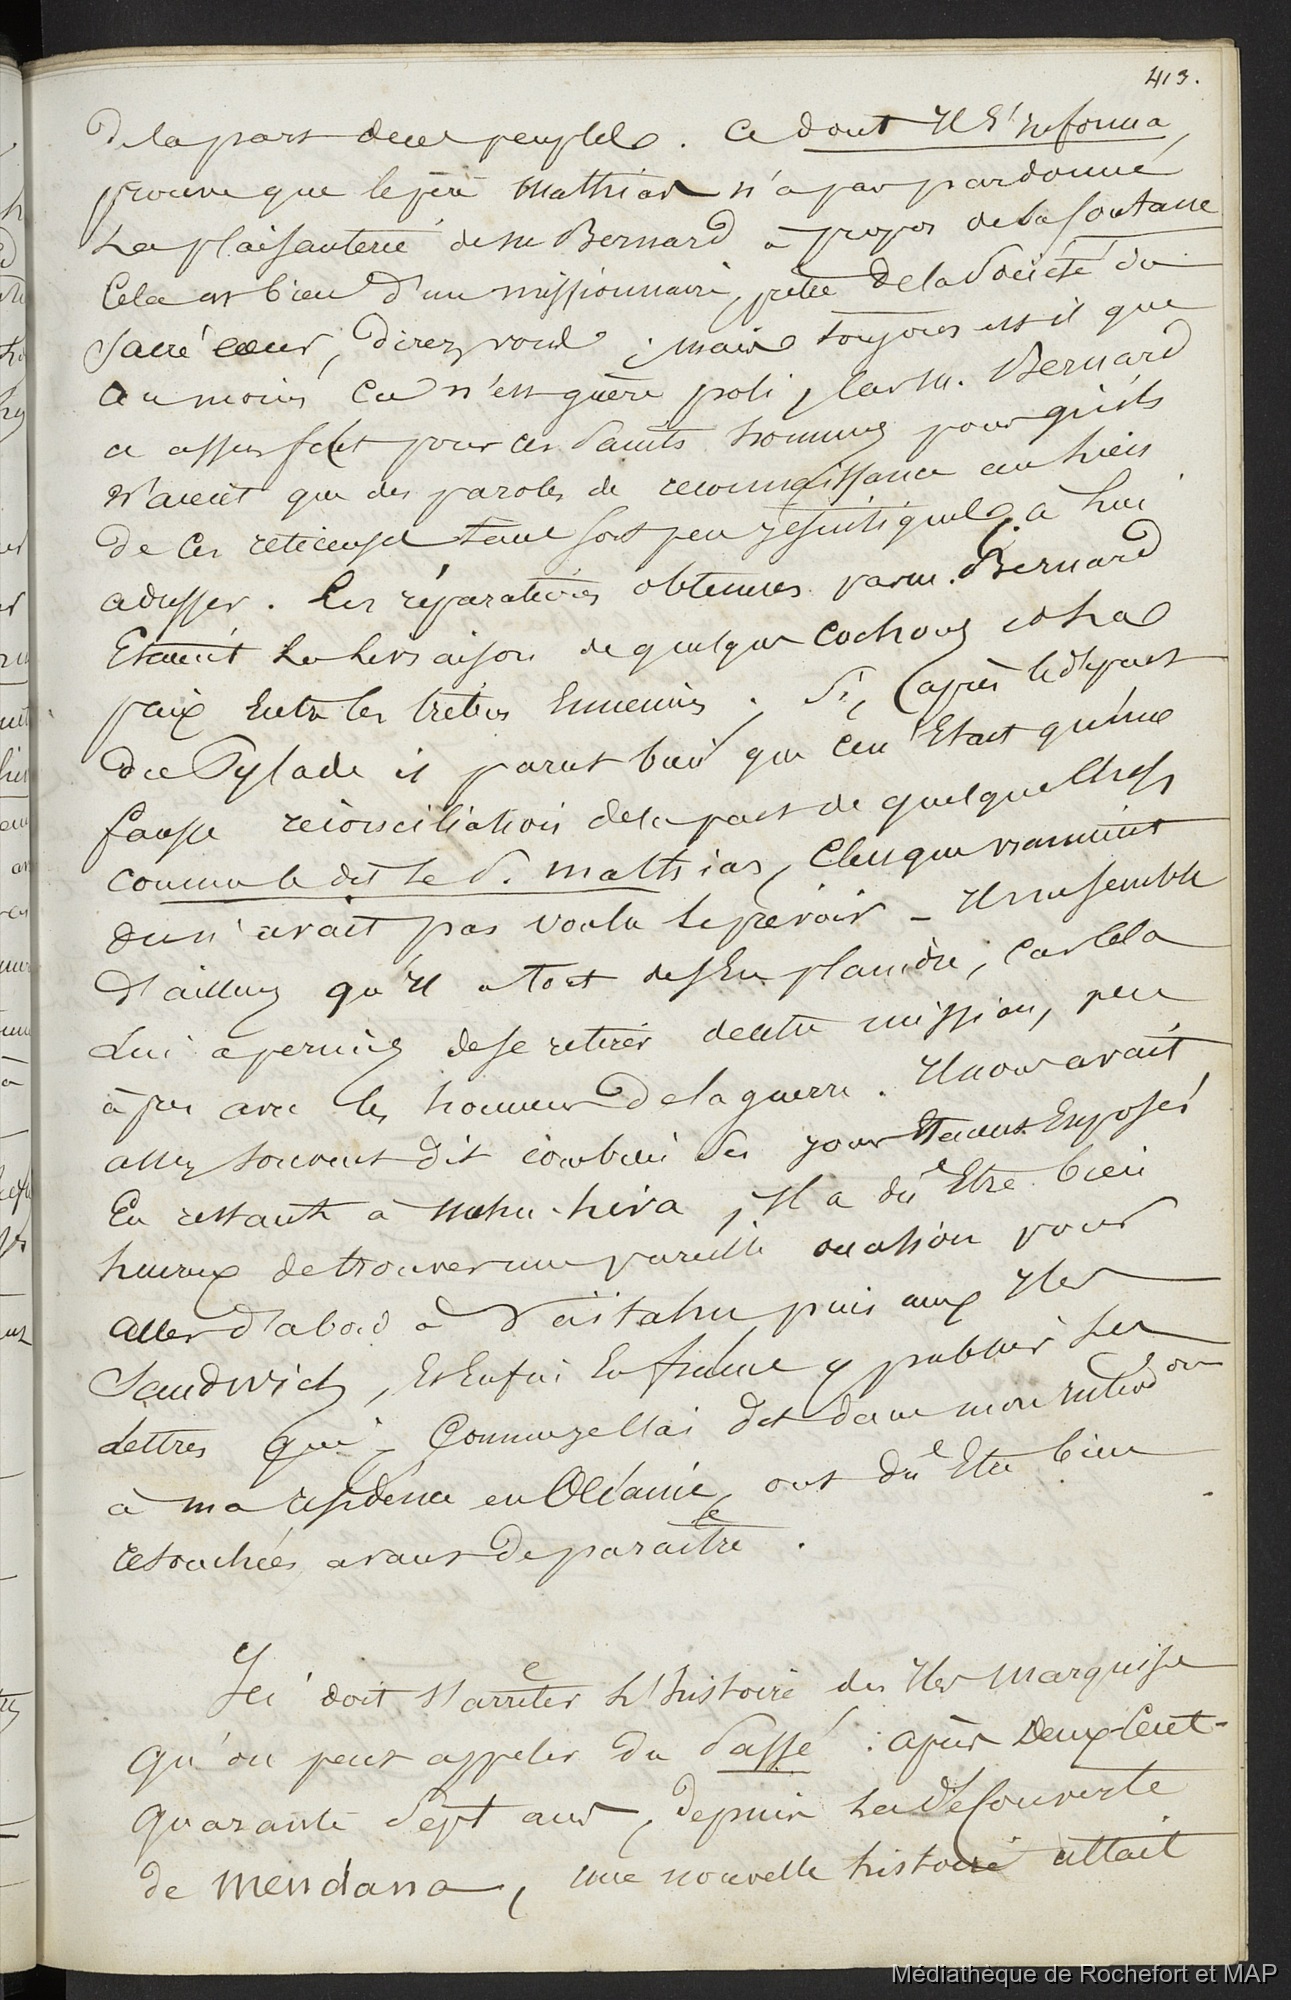 413.
de la part de ce peuple. Ce dont il s'informa,
prouve que le père Mathias n'a pas pardonné
La plaisanterie de M Bernard à propos de la soutane
Cela est bien d'un missionnaire, prêtre de la Société du
Sacré cœur, direz vous ; mais toujours est-il que
au moins ça n'est guère poli, car M. Bernard
a assez fait pour ces saints hommes pour qu'ils
n'aient que des paroles de reconnaissance au lieu
de ces réticenses tant soit peu jésuitiques à lui
adresser. Les réparations obtenues par M. Bernard
Etaient La livraison de quelques cochons et La
paix Entre les tribus Ennemies. Si, après le départ
du Pylade il parut bien que ce n'Etait qu'une
fausse réconciliation de la part de quelques Chefs
comme le dit le P. Mathias, C'est que vraiment
on n'avait pas voulu le prévoir - Il me semble
D'ailleurs qu'Il a tort de s'En plaindre, Car Cela
Lui a permis de se retirer de cette mission, peu
à peu avec les honneurs de la guerre. Il nous avait
assez souvent dit combien Ses jours Etaient Exposés
En restant à Nuhu-hiva, Il a dû Etre bien
heureux de trouver une pareille occasion pour
aller d'abord à Vaitahu puis aux Iles
Sandwich, Et Enfin En france y publier Les
Lettres qui, Comme je l'ai dit dans mon introd on
à ma résidence en Océanie, ont dû Etre bien
retouchées avant de paraître.
Ici doit s'arrêter L'histoire des Iles Marquises
qu'on peut appeler du Passé : après Deux-Cent-
quarante Sept ans, depuis La découverte
de Mendana, une nouvelle histoire allait
Médiathèque de Rochefort et MAP